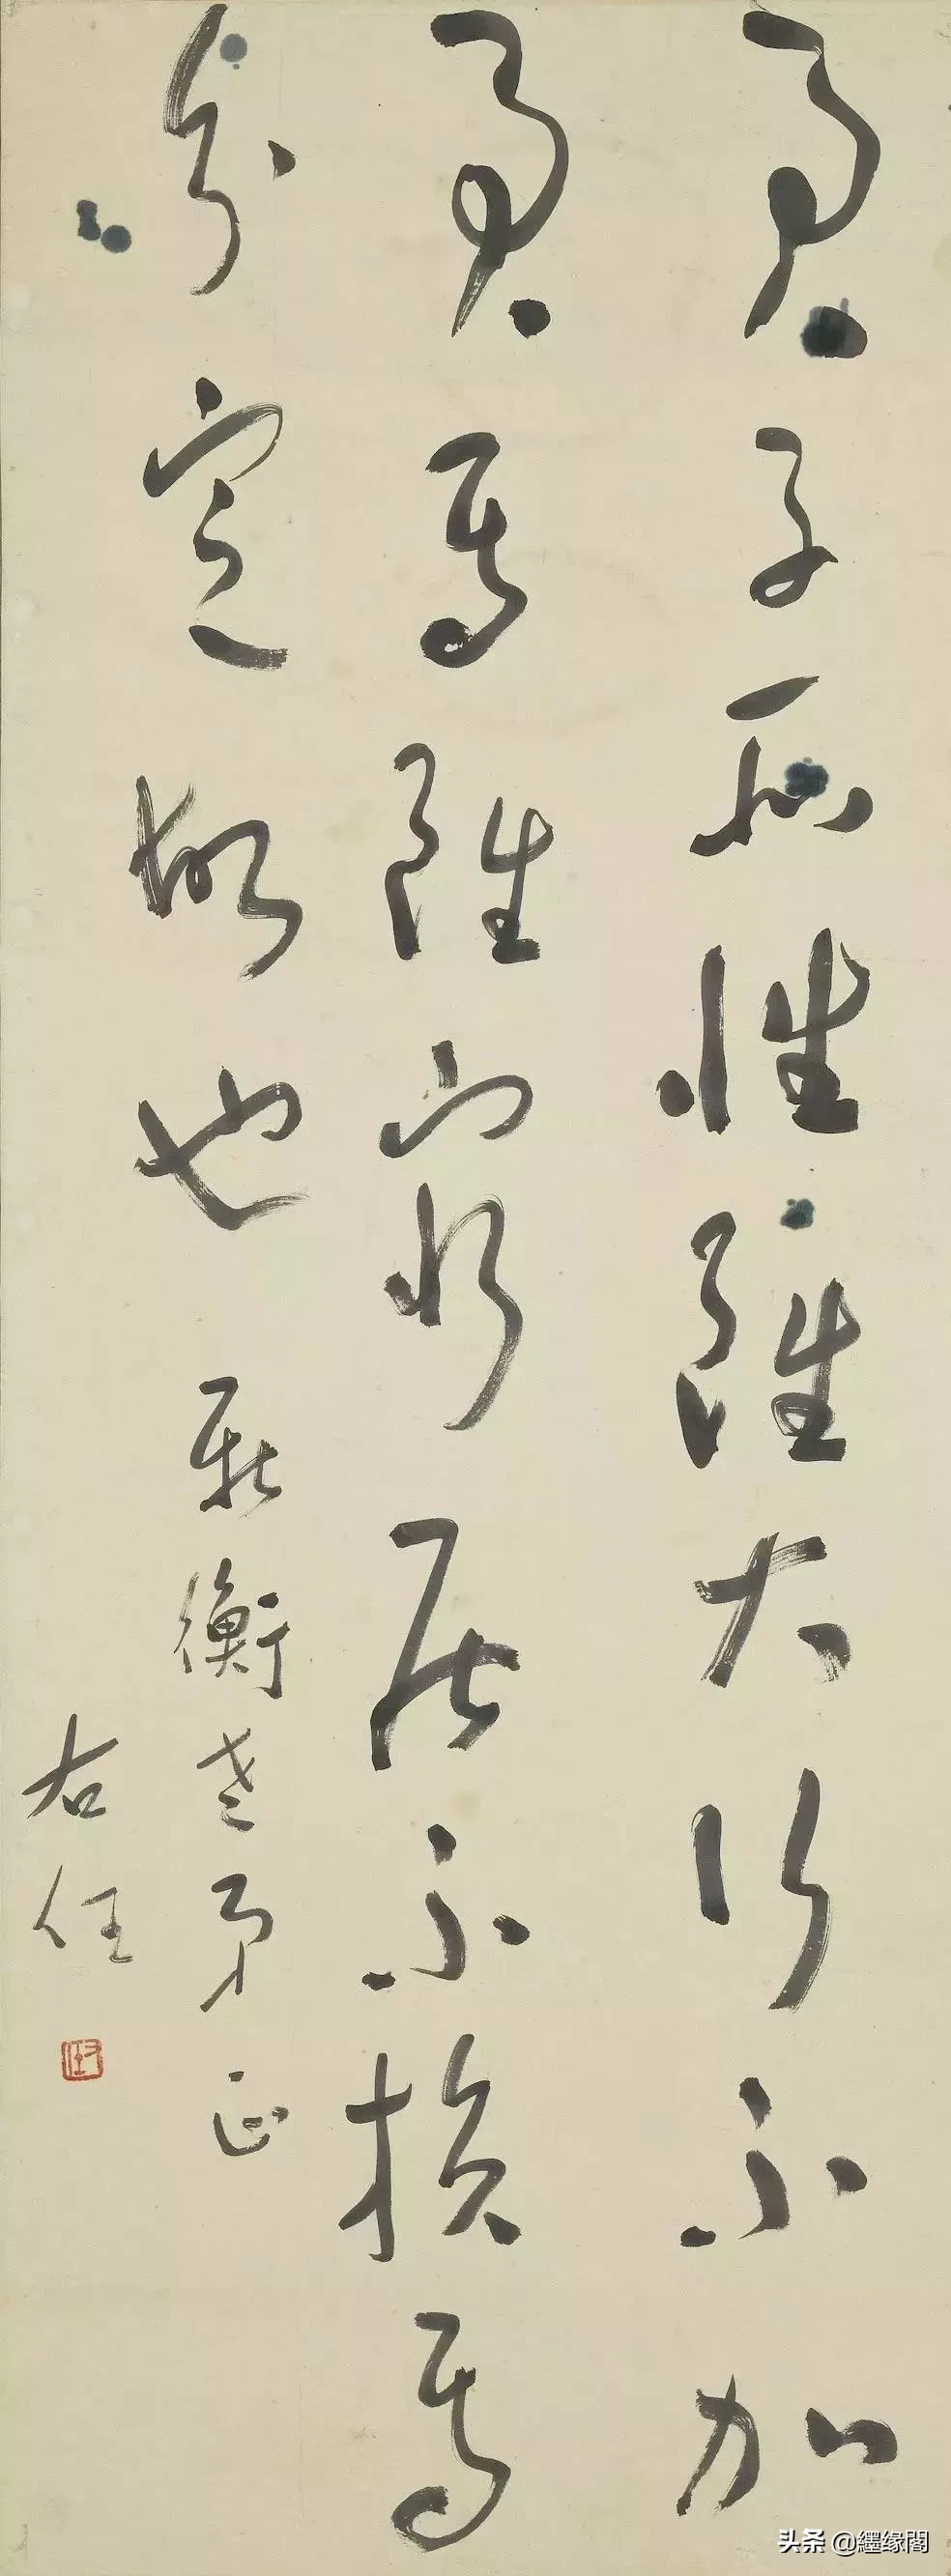 君子所性雖大行不加
焉雖窮居不損焉
分定故也 衡老弟正
右任
头条 @缘閣